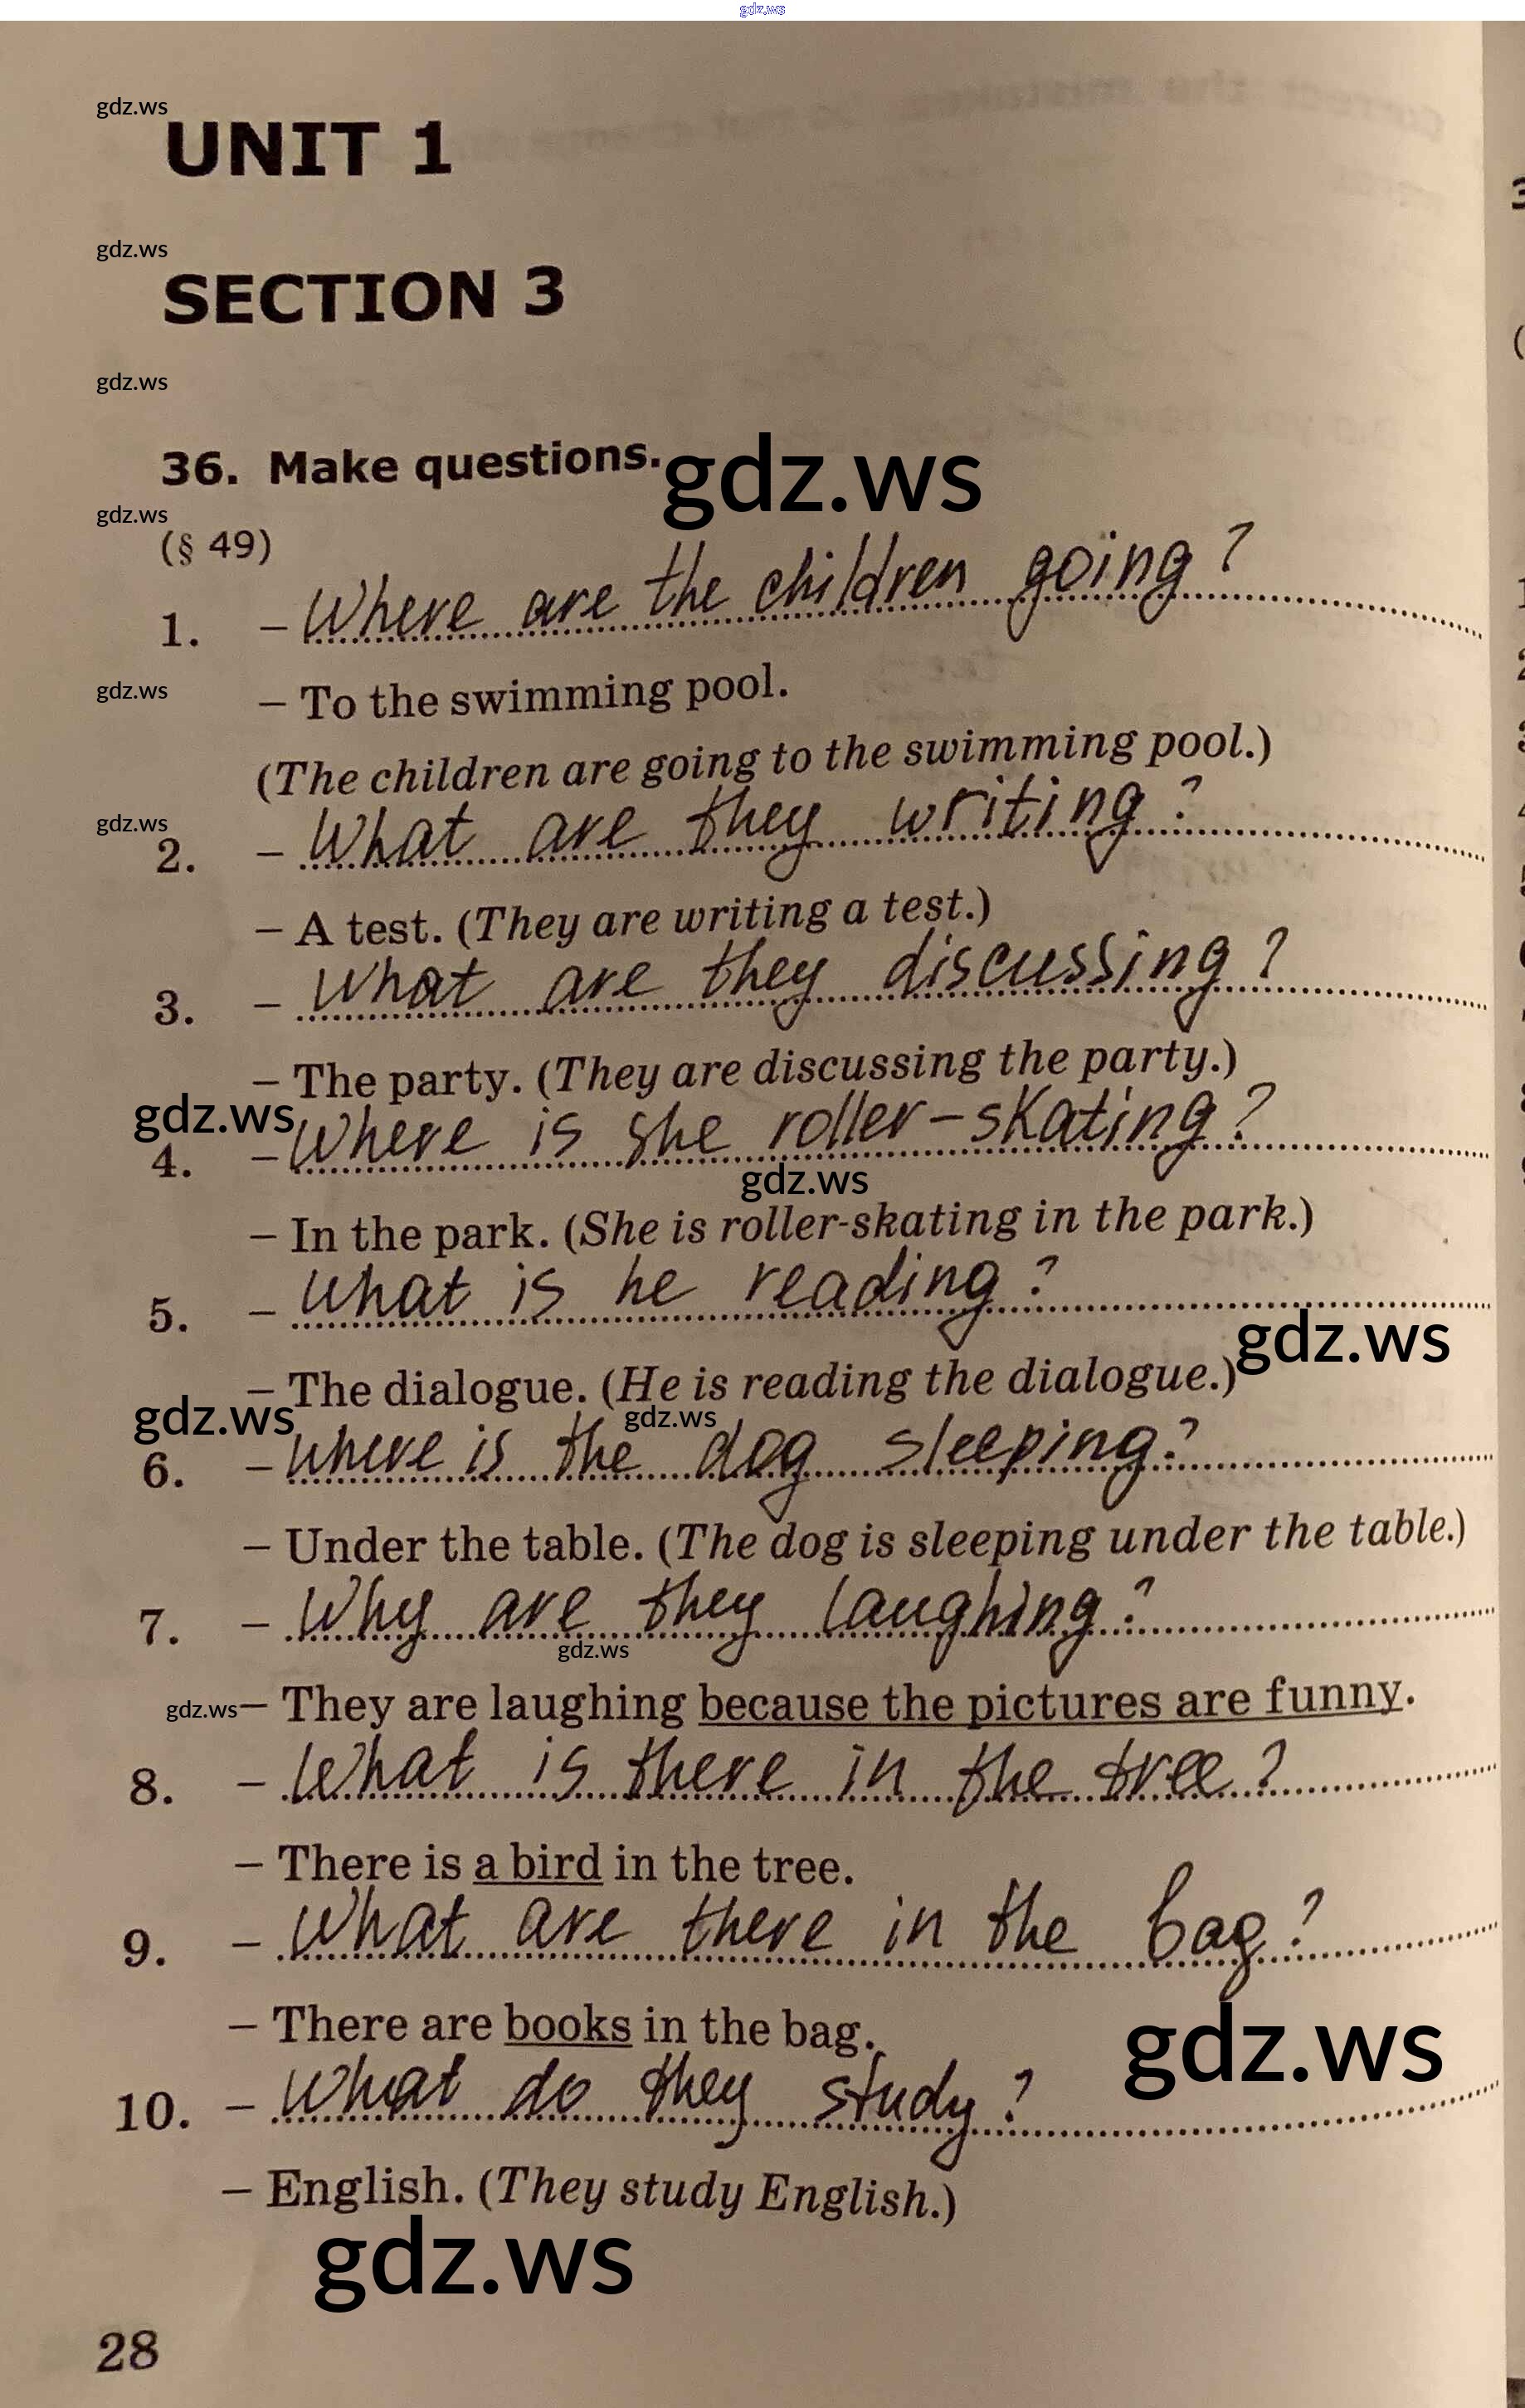 gdz.ws
gdz.ws
UNIT 1
gdz.ws
SECTION 3
gdz.ws
36. Make questions.
gdz.ws
gdz.ws
(§ 49)
1. – Where are the children going?
gdz.ws
– To the swimming pool.
(The children are going to the swimming pool.)
gdz.ws
2. – What are they writing?
– A test. (They are writing a test.)
3. – What are they discussing?
– The party. (They are discussing the party.)
gdz.ws
4. – Where is she roller-skating?
gdz.ws
– In the park. (She is roller-skating in the park.)
5. – What is he reading?
gdz.ws
– The dialogue. (He is reading the dialogue.)
gdz.ws
gdz.ws
6. – Where is the dog sleeping?
– Under the table. (The dog is sleeping under the table.)
7. – Why are they laughing?
gdz.ws
gdz.ws
– They are laughing because the pictures are funny.
8. – What is there in the tree?
– There is a bird in the tree.
9. – What are there in the bag?
– There are books in the bag.
gdz.ws
10. – What do they study?
– English. (They study English.)
gdz.ws
28